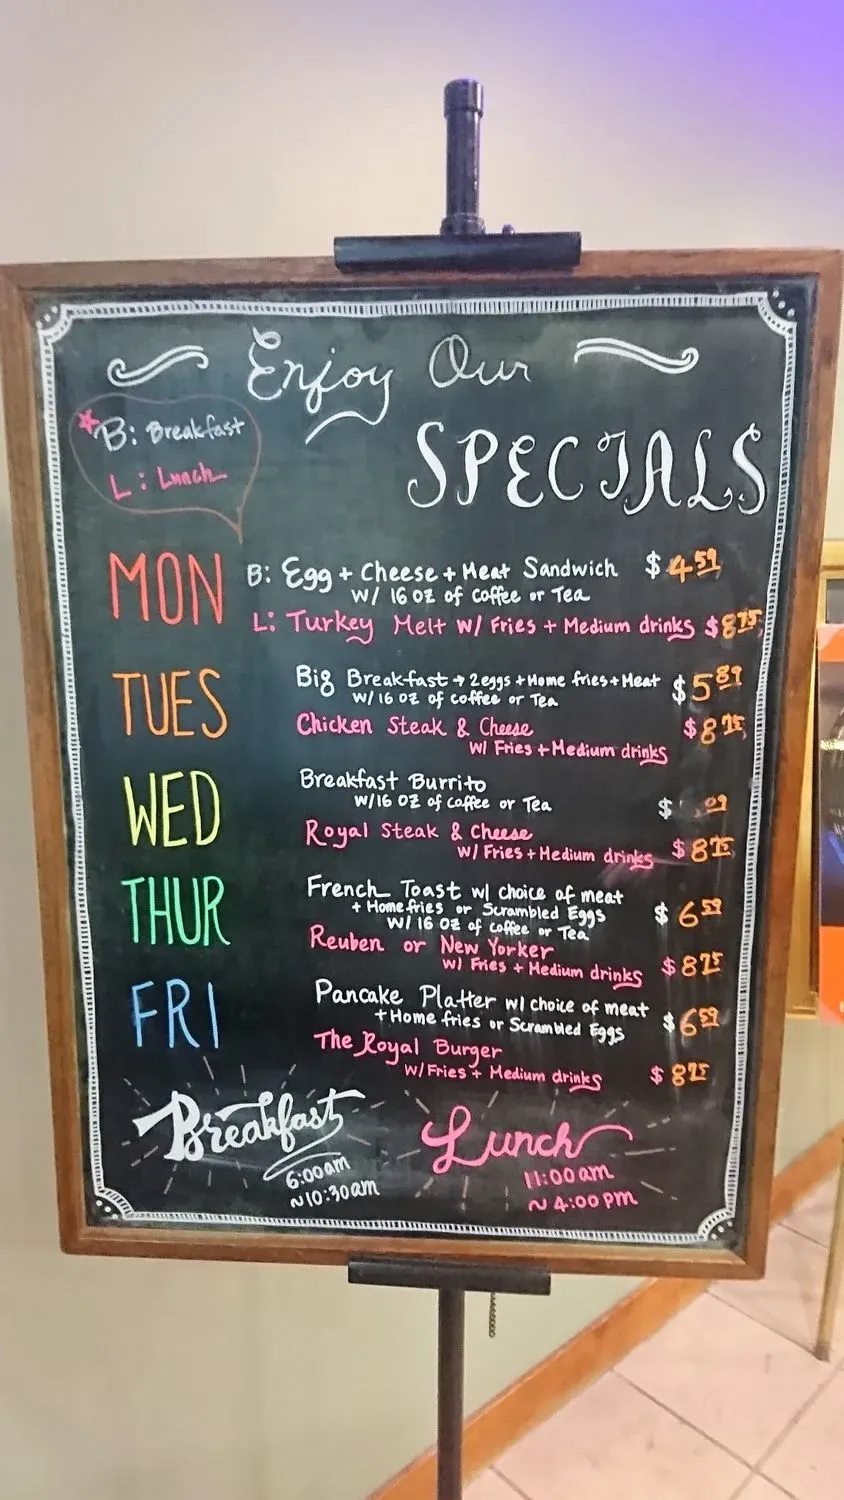 Enjoy Our
SPECIALS
B: Breakfast
L: Lunch
MON
B: Egg + Cheese + Meat Sandwich $4.59
W/ 16 oz of Coffee or Tea
L: Turkey Melt w/ Fries + Medium drinks $8.75
TUES
Big Breakfast → 2eggs + Home fries + Meat $5.89
W/ 16 oz of Coffee or Tea
Chicken Steak & Cheese $8.75
W/ Fries + Medium drinks
WED
Breakfast Burrito
W/16 oz of Coffee or Tea $ .09
Royal Steak & Cheese
W/ Fries + Medium drinks $8.75
THUR
French Toast w/ choice of meat
+ Home fries or Scrambled Eggs $6.59
W/ 16 oz of Coffee or Tea
Reuben or New Yorker
W/ Fries + Medium drinks $8.75
FRI
Pancake Platter w/ choice of meat
+ Home fries or Scrambled Eggs $6.59
The Royal Burger
W/ Fries + Medium drinks $8.75
Breakfast
6:00am
~10:30am
Lunch
11:00am
~ 4:00pm